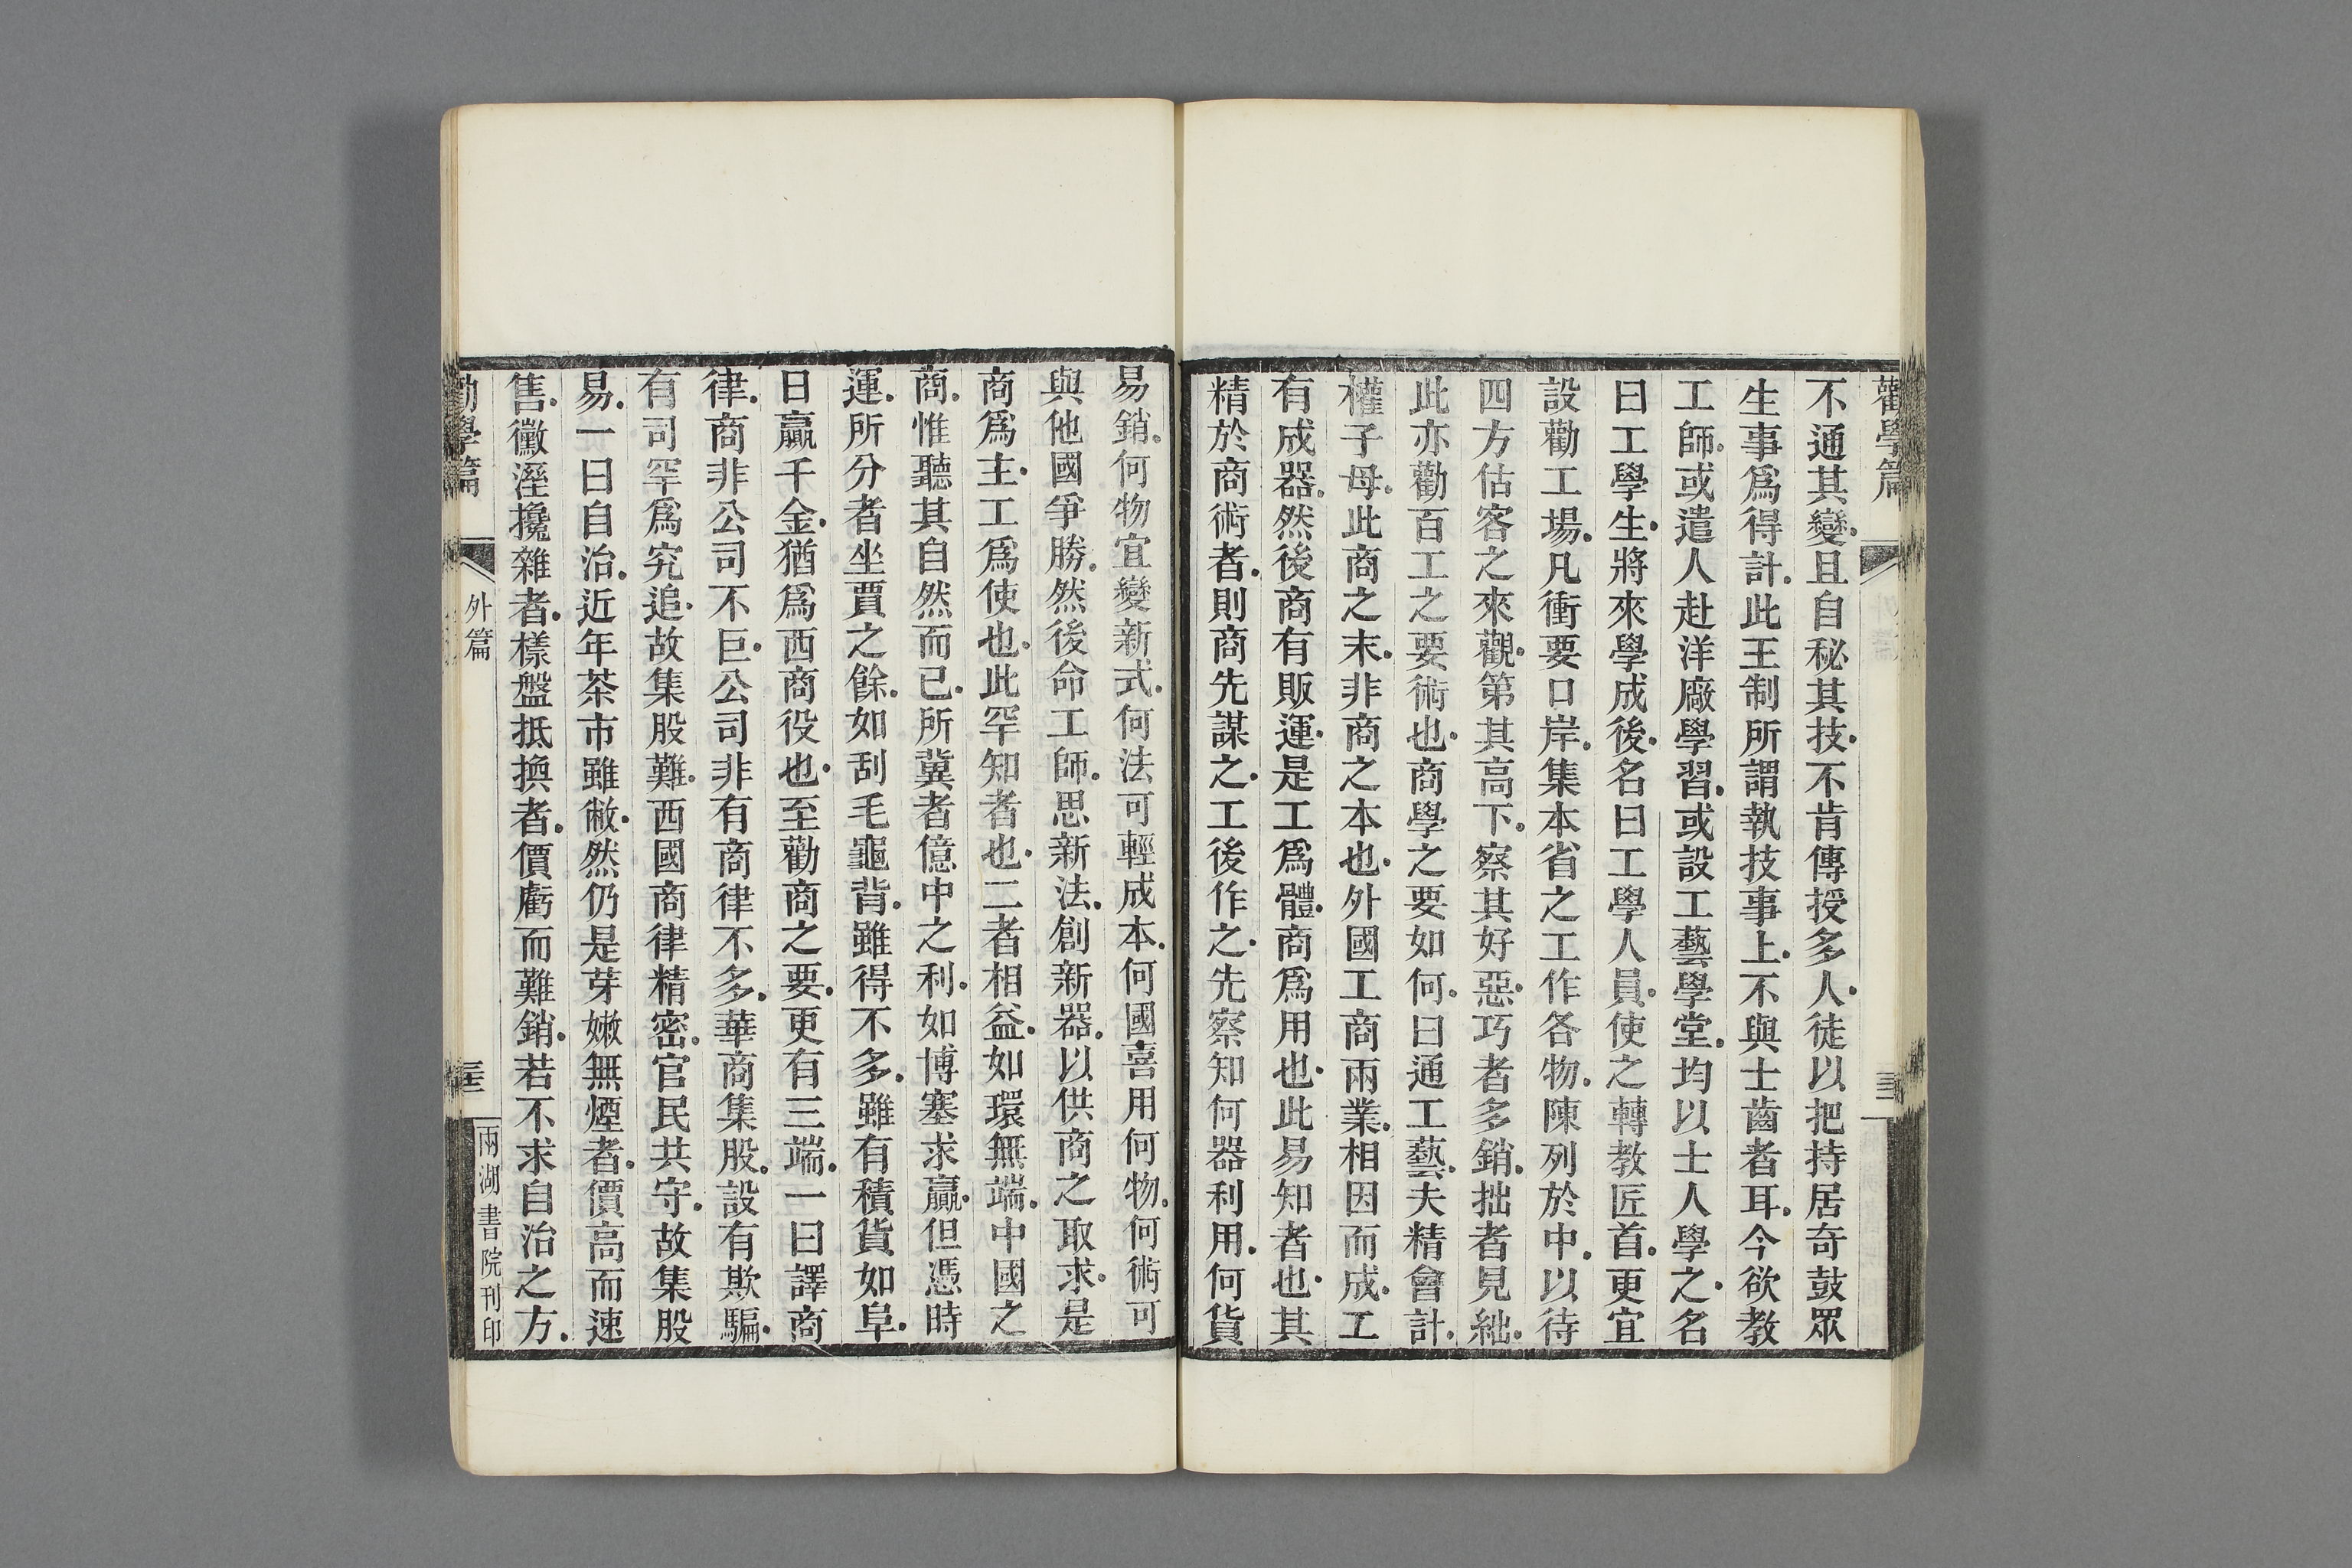 勸學篇
不通其變。且自秘其技。不肯傳授多人。徒以把持居奇鼓眾
生事爲得計。此王制所謂執技事上。不與士齒者耳。今欲教
工師。或遣人赴洋廠學習。或設工藝學堂。均以士人學之。名
曰工學生。將來學成後。名曰工學人員。使之轉教匠首。更宜
設勸工場。凡衝要口岸。集本省之工作各物。陳列於中。以待
四方估客之來觀。第其高下。察其好惡。巧者多銷。拙者見絀。
此亦勸百工之要術也。商學之要如何。曰通工藝。夫精會計。
權子母。此商之末。非商之本也。外國工商兩業。相因而成。工
有成器。然後商有販運。是工爲體。商爲用也。此易知者也。其
精於商術者。則商先謀之。工後作之。先察知何器利用。何貨
易銷。何物宜變新式。何法可輕成本。何國喜用何物。何術可
與他國爭勝。然後命工師。思新法。創新器。以供商之取求。是
商爲主。工爲使也。此罕知者也。二者相益。如環無端。中國之
商。惟聽其自然而已。所冀者億中之利。如博塞求贏。但憑時
運。所分者坐賈之餘。如刮毛龜背。雖得不多。雖有積貨如阜。
日贏千金。猶爲西商役也。至勸商之要。更有三端。一曰譯商
律。商非公司不巨。公司非有商律不多。華商集股。設有欺騙。
有司罕爲究追。故集股難。西國商律精密。官民共守。故集股
易。一曰自治。近年茶市雖敝。然仍是芽嫩無煙者。價高而速
售。黴溼攙雜者。樣盤抵換者。價虧而難銷。若不求自治之方。
勸學篇
外篇
兩湖書院刊印